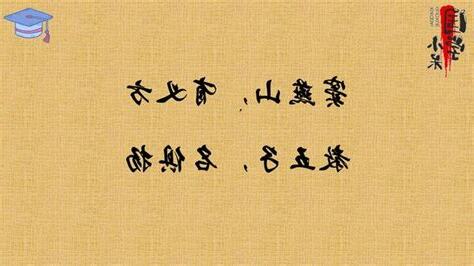 窦燕山，有义方
教五子，名俱扬
小米